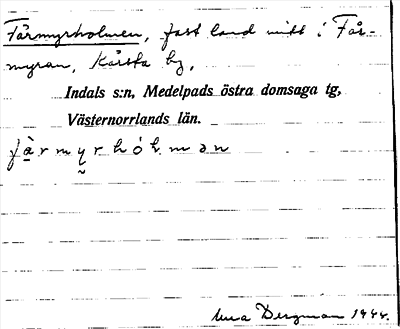 Fårmyrholmen, fast land mitt i Får-
myran, Kårsta by,
Indals s:n, Medelpads östra domsaga tg,
Västernorrlands län.
fàrmyrhólmən
Bergman 1944.